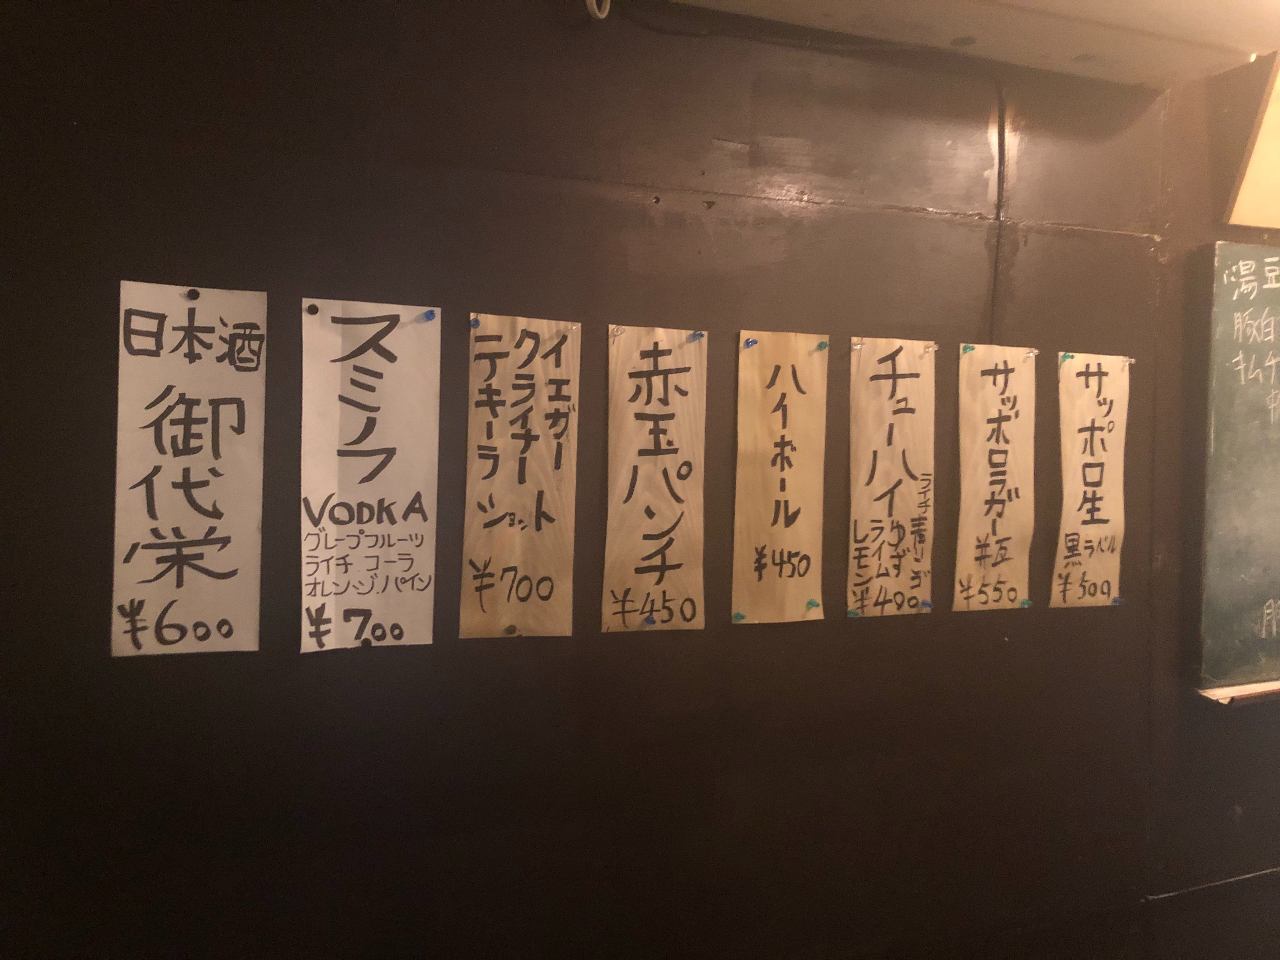 サッポロ生
黒ラベル
¥500
サッポロラガー
¥550
チューハイ
ライチ 青りんご
ゆず
ライム
レモン
¥400
ハイボール
¥450
赤玉パンチ
¥450
イエガー
クライナー
テキーラ
ショット
¥700
スミノフ
VODKA
グレープフルーツ
ライチ.コーラ
オレンジ.パイン
¥700
日本酒
御代栄
¥600